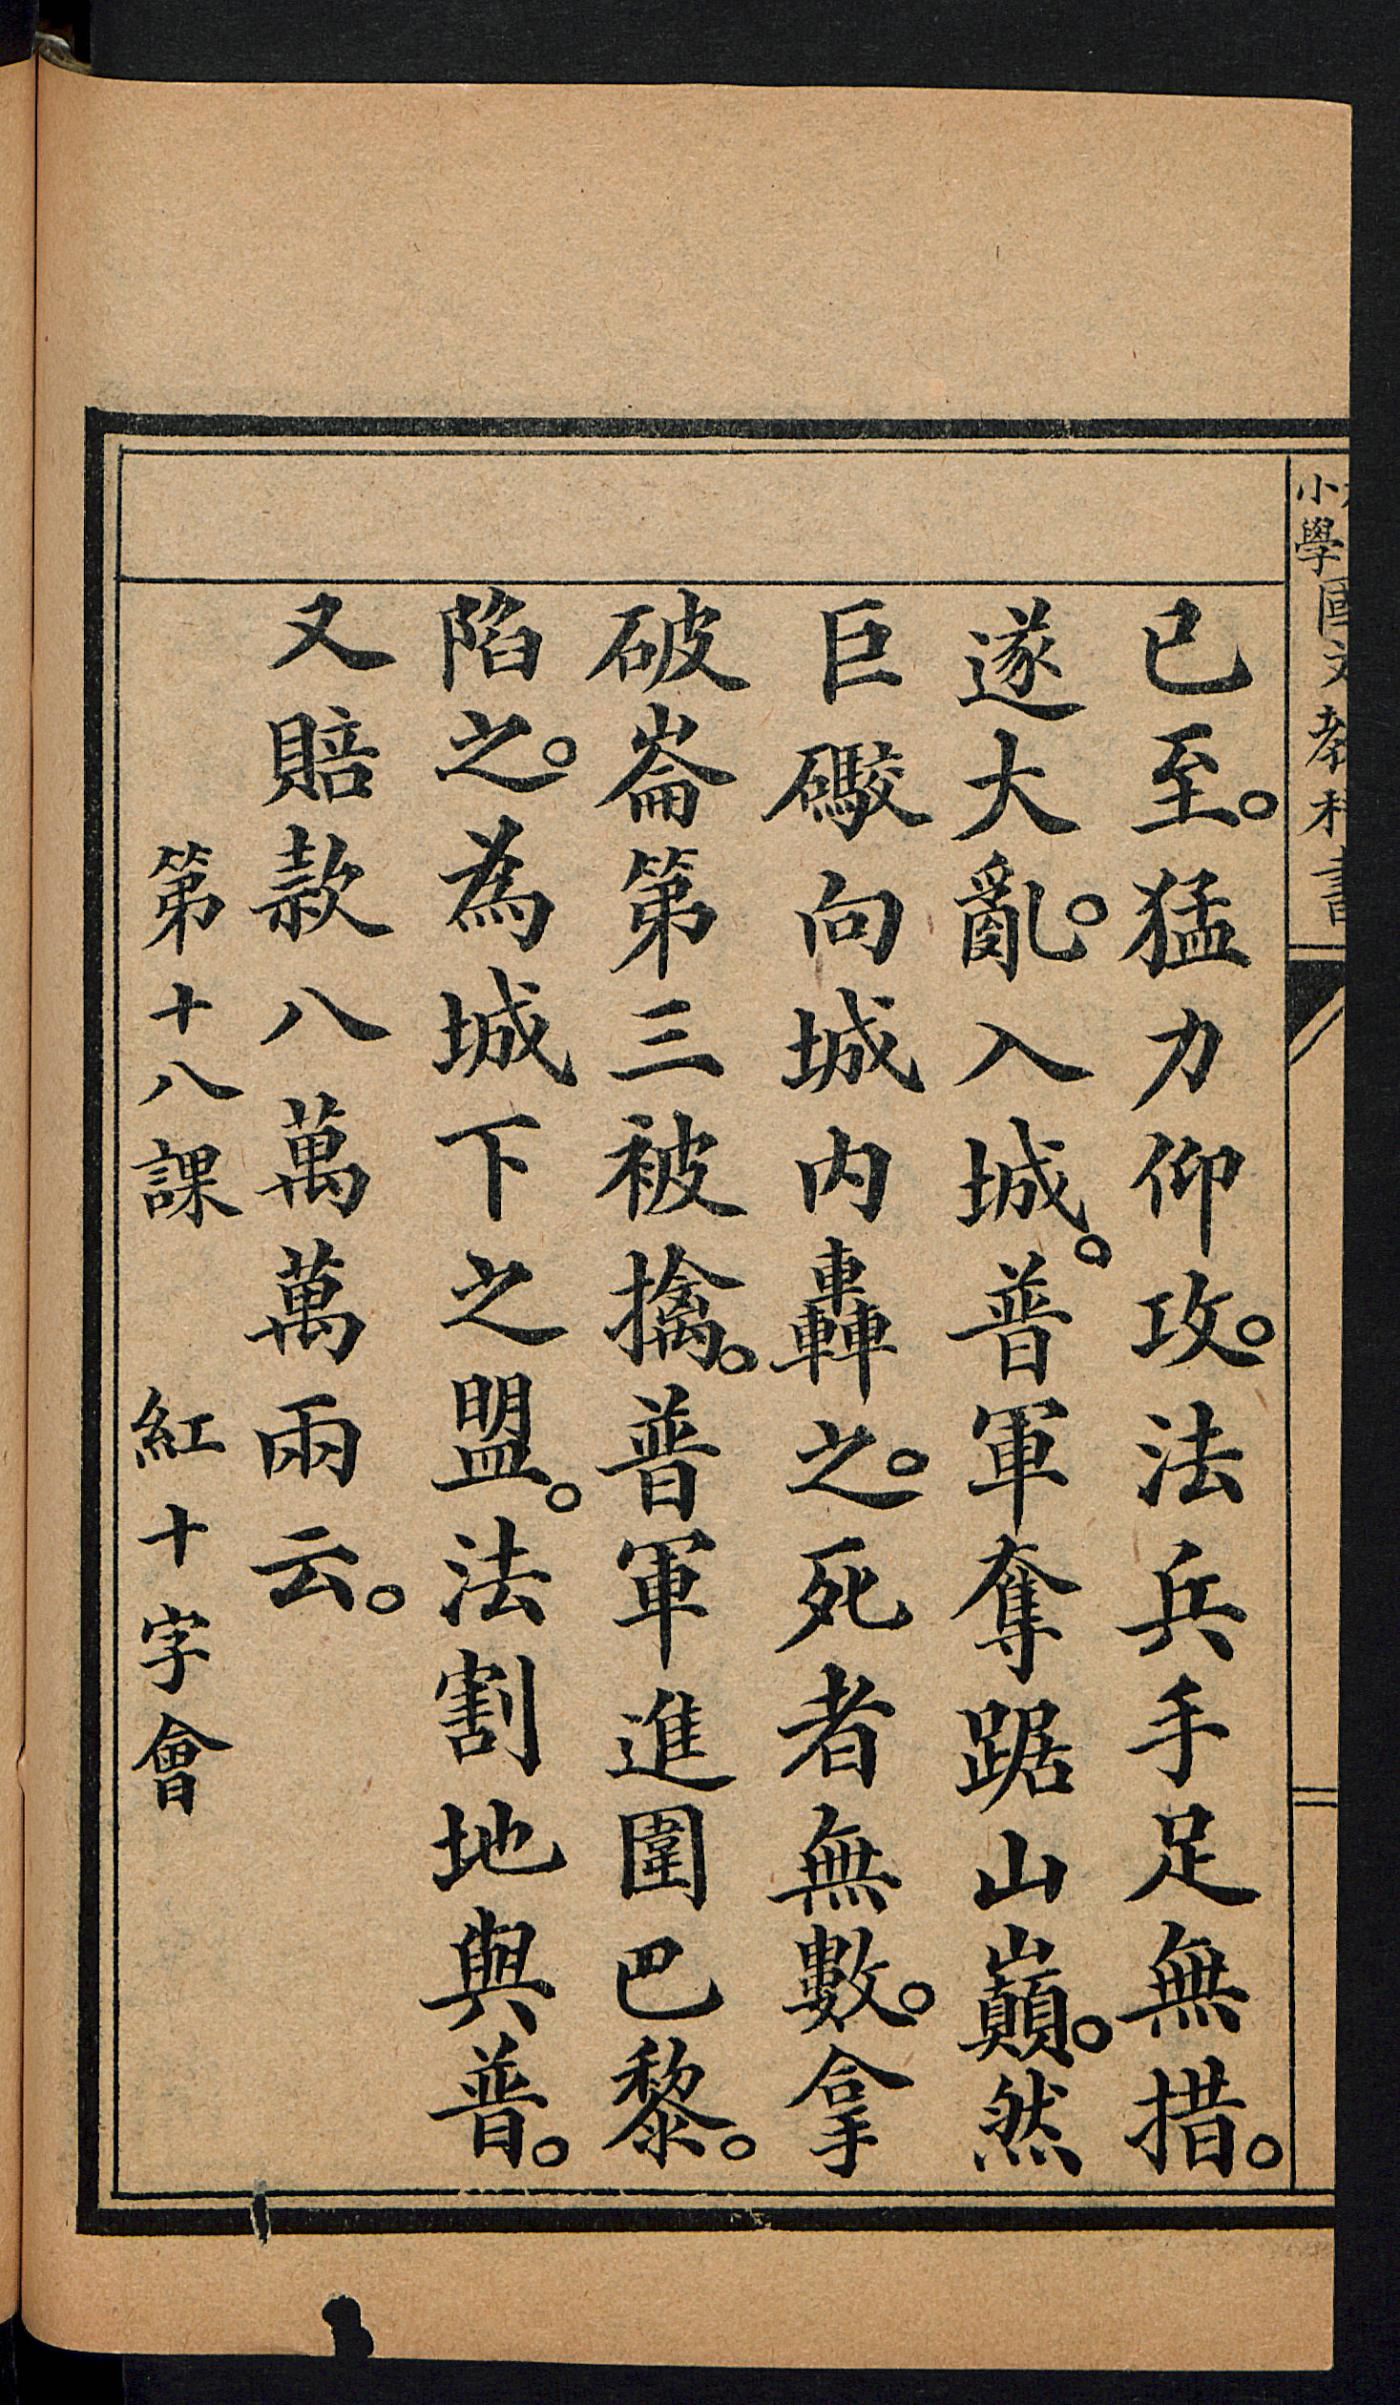 小學國文教科書
已至。猛力仰攻。法兵手足無措。
遂大亂。入城。普軍奪踞山巔。然
巨礮向城內轟之。死者無數。拿
破崙第三被擒。普軍進圍巴黎。
陷之。為城下之盟。法割地與普。
又賠款八萬萬兩云。
第十八課 紅十字會